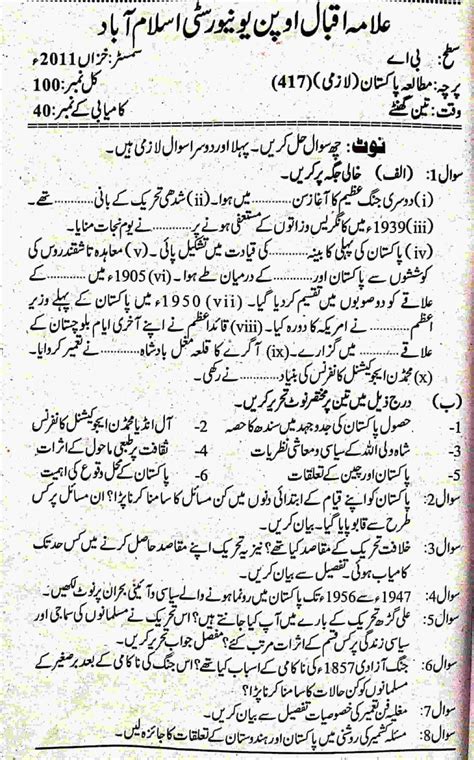 علامہ اقبال اوپن یونیورسٹی اسلام آباد
سطح: بی اے سمسٹر: خزاں 2011ء
پرچہ: مطالعہ پاکستان (لازمی) (417) کل نمبر: 100
وقت: تین گھنٹے کامیابی کے نمبر: 40
نوٹ: چھ سوال حل کریں۔ پہلا اور دوسرا سوال لازمی ہیں۔
سوال 1: (الف) خالی جگہ پر کریں۔
(i) دوسری جنگ عظیم کا آغاز سن ............ میں ہوا۔ (ii) شدھی تحریک کے بانی ............ تھے۔
(iii) 1939ء میں کانگریس وزارتوں کے مستعفی ہونے پر ............ نے یوم نجات منایا۔
(iv) پاکستان کی پہلی کابینہ ............ کی قیادت میں تشکیل پائی۔ (v) معاہدہ تاشقند روس کی
کوششوں سے پاکستان اور ............ کے درمیان طے ہوا۔ (vi) 1905ء میں ............ کے
علاقے کو دو صوبوں میں تقسیم کردیا گیا۔ (vii) 1950ء میں پاکستان کے پہلے وزیر
اعظم ............ نے امریکہ کا دورہ کیا۔ (viii) قائداعظم نے اپنے آخری ایام بلوچستان کے
علاقے ............ میں گزارے۔ (ix) آگرے کا قلعہ مغل بادشاہ ............ نے تعمیر کروایا۔
(x) محمڈن ایجوکیشنل کانفرنس کی بنیاد ............ نے رکھی۔
(ب) درج ذیل میں تین پر مختصر نوٹ تحریر کریں۔
1- حصول پاکستان کی جدوجہد میں سندھ کا حصہ 2- آل انڈیا محمڈن ایجوکیشنل کانفرنس
3- شاہ ولی اللہ کے سیاسی و معاشی نظریات 4- ثقافت پر طبعی ماحول کے اثرات
5- پاکستان اور چین کے تعلقات 6- پاکستان کے محل وقوع کی اہمیت
سوال 2: پاکستان کو اپنے قیام کے ابتدائی دنوں میں کن مسائل کا سامنا کرنا پڑا؟ ان مسائل پر کس
طرح سے قابو پایا گیا۔ بیان کریں۔
سوال 3: خلافت تحریک کے مقاصد کیا تھے؟ نیز یہ تحریک اپنے مقاصد حاصل کرنے میں کس حد تک
کامیاب ہوئی۔ تفصیل سے بیان کریں۔
سوال 4: 1947ء سے 1956ء تک پاکستان میں رونما ہونے والے سیاسی و آئینی بحران پر نوٹ لکھیں۔
سوال 5: علی گڑھ تحریک کے بارے میں آپ کیا جانتے ہیں؟ اس تحریک نے مسلمانوں کی سماجی اور
سیاسی زندگی پر کس قسم کے اثرات مرتب کئے؟ مفصل جواب تحریر کریں۔
سوال 6: جنگ آزادی 1857ء کی ناکامی کے اسباب کیا تھے؟ اس جنگ کی ناکامی کے بعد برصغیر کے
مسلمانوں کو کن حالات کا سامنا کرنا پڑا؟
سوال 7: مغلیہ فن تعمیر کی خصوصیات تفصیل سے بیان کریں۔
سوال 8: مسئلہ کشمیر کی روشنی میں پاکستان اور ہندوستان کے تعلقات کا جائزہ لیں۔